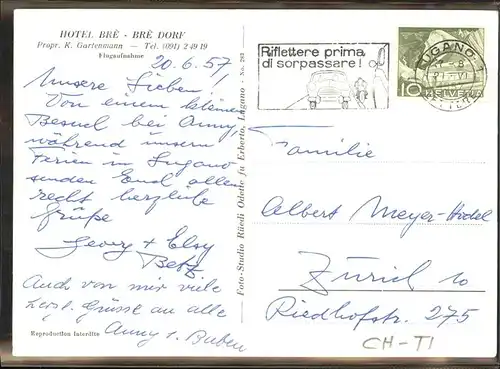 HOTEL BRÈ - BRÈ DORF
Propr. K. Gartenmann — Tel. (091) 2 49 19
Flugaufnahme
20.6.57
Unsere Lieben!
Von einem kleinen
Besuch bei Anny,
während unsern
Ferien in Lugano
senden Euch allen
recht herzliche
Grüsse
Georg + Elsy
Betz
Auch von mir viele
herzl. Grüsse an alle
Anny
Reproduction interdite
Foto-Studio Riedi Odette fu Erberto, Lugano - No. 283
Riflettere prima
di sorpassare!
LUGANO 1
10 HELVETIA
Familie
Albert Meyer-
Zürich 10
Riedhofstr. 275
CH-TI